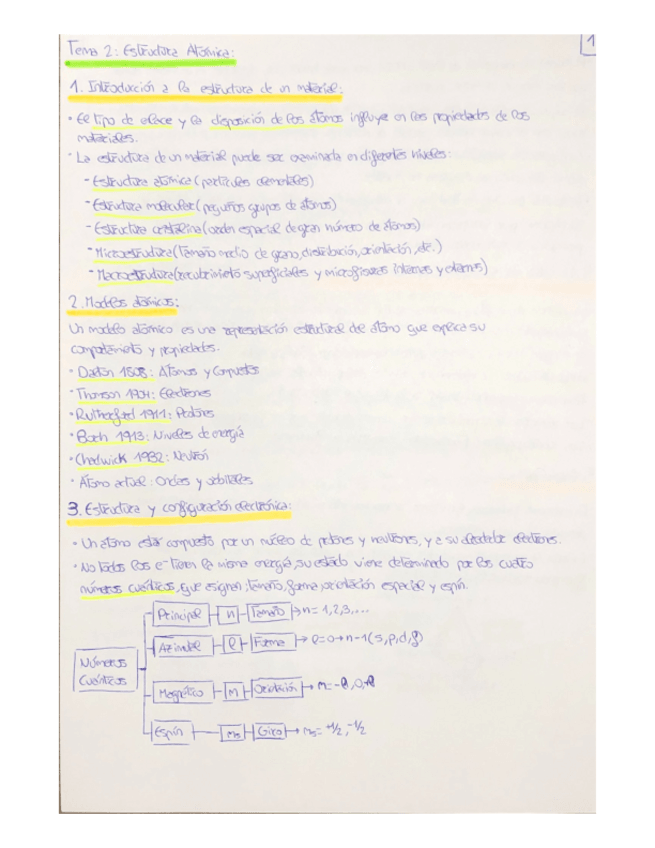 1
Tema 2: Estructura Atómica:
1. Introducción a la estructura de un material:
• El tipo de enlace y la disposición de los átomos influye en las propiedades de los
materiales.
• La estructura de un material puede ser examinada en diferentes niveles:
- Estructura atómica (partículas elementales)
- Estructura molecular (pequeños grupos de átomos)
- Estructura cristalina (orden espacial de gran número de átomos)
- Microestructura (Tamaño medio de grano, distribución, orientación, etc.)
- Macroestructura (recubrimiento superficiales y microfisuras internas y externas)
2. Modelos atómicos:
Un modelo atómico es una representación estructural del átomo que explica su
comportamiento y propiedades.
• Dalton 1808: Átomos y Compuestos
• Thomson 1904: Electrones
• Rutherford 1911: Protones
• Bohr 1913: Niveles de energía
• Chadwick 1932: Neutrón
• Átomo actual: Ondas y orbitales
3. Estructura y configuración electrónica:
• Un átomo está compuesto por un núcleo de protones y neutrones, y a su alrededor electrones.
• No todos los e- tienen la misma energía, su estado viene determinado por los cuatro
números cuánticos, que asignan: tamaño, forma, orientación espacial y espín.
Números Cuánticos
Principal n Tamaño → n = 1,2,3,...
Azimutal l Forma → l = 0 → n-1 (s, p, d, f)
Magnético m Orientación → m = -l, 0, +l
Espín ms Giro → ms = +1/2, -1/2